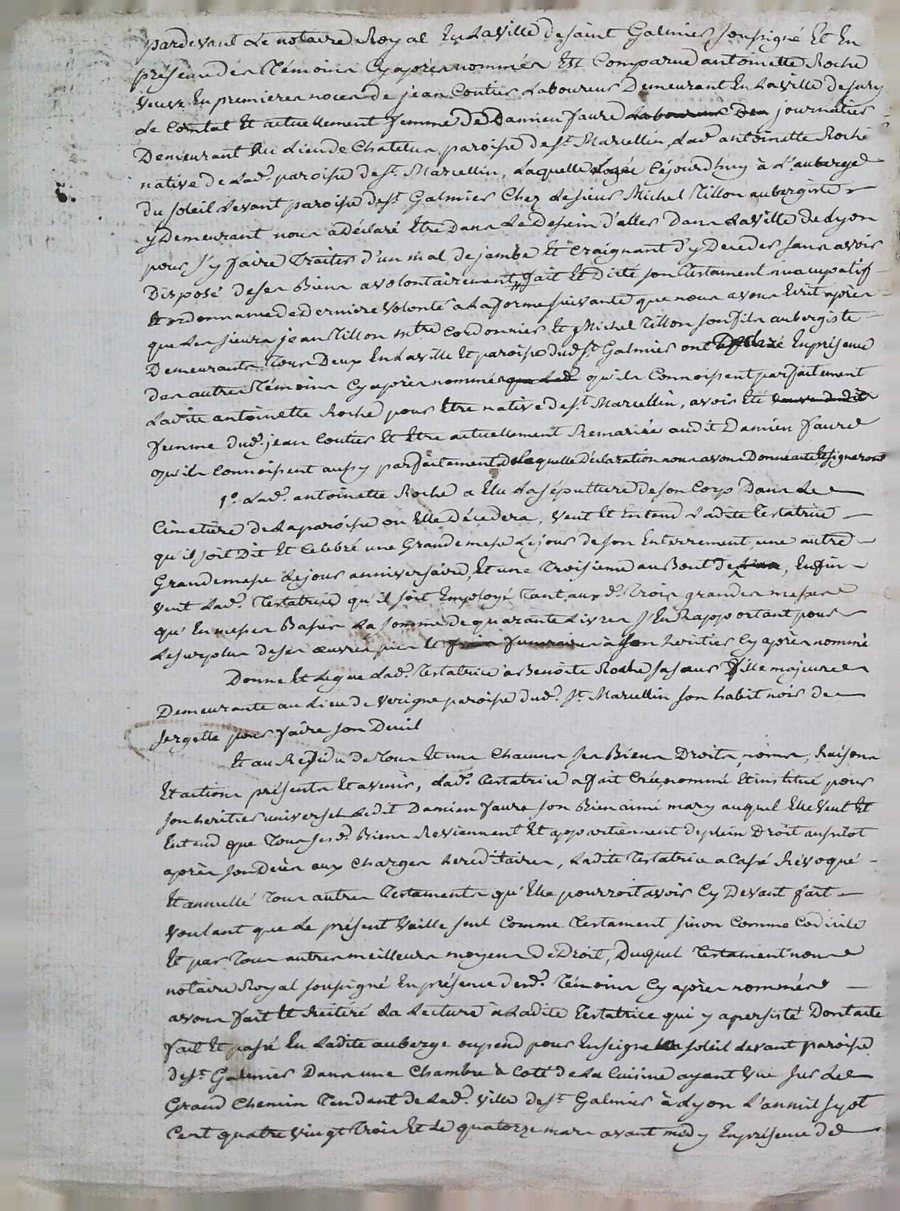 pardevant Le notaire Royal En La ville de saint Galmier soussigné Et En
présence des Témoins Cy après nommés Est Comparue antoinette Roche
veuve En premieres noces de jean Coutier Laboureur Demeurant En La ville de sury
Le Comtal Et actuellement femme de Damien faure Laboureur journalier
Demeurant au Lieu de Chatelus paroisse de st. Marcellin, Lad. antoinette Roche
native de Lad. paroisse de st. Marcellin, Laquelle Logée Cejourdhuy à L'auberge
du soleil Levant paroisse de st. Galmier Chez Le sieur Michel Tillon aubergiste
y Demeurant nous a déclaré Etre dans Le Dessein d'aller Dans La ville de Lyon
pour s'y faire Traiter d'un mal de jambe Et Craignant d'y Deceder sans avoir
Disposé de ses Biens a volontairement fait Et Dicté son Testament nuncupatif
Et ordonnance de Derniere volonté a La forme suivante que nous avons Ecrit après
que Les sieurs jean Tillon mtre. Cordonnier Et Michel Tillon son fils aubergiste
Demeurants Tous Deux En La ville Et paroisse dud. st. Galmier ont En présence
des autres Témoins Cy après nommés que Lad. qu'ils Connoissent parfaitement
Ladite antoinette Roche pour Etre native de st. Marcellin, avoir Eté
femme dud. jean Coutier Et Etre actuellement Remariée audit Damien faure
qu'ils Connoissent aussy parfaitement De laquelle Déclaration nous avons Donné acte Et signeront
1°. Lad. antoinette Roche a Elu La sépulture de son Corps Dans Le
Cimetière de La paroisse ou Elle Décedera, veut Et Entend Ladite Testatrice
qu'il soit Dit Et Celebré une Grande messe Le jour de son Enterrement, une autre
Grande messe Le jour anniversaire, Et une Troisieme au Bout de, Enfin
veut Lad. Testatrice qu'il soit Employé Tant auxd. Trois grandes messes
qu'En messes Basses La somme de quarante Livres s'En Rapportant pour
Le surplus de ses œuvres pies à son heritier Cy après nommé
Donne Et Legue Lad. Testatrice à Benoite Roche sa sœur fille majeure
Demeurante au Lieu de verigne paroisse dud. st. Marcellin son habit noir de
sergette pour faire son Deuil
Et au Residu de Tous Et uns Chacuns ses Biens Droits, noms, Raisons
Et actions présents Et avenir, Lad. Testatrice a fait Créé, nommé Et institué pour
son heritier universel Ledit Damien faure son Bien aimé mary auquel Elle veut Et
Entend que Tous sesd. Biens Reviennent Et appartiennent de plein Droit aussitot
après son Décès aux Charges hereditaires, Ladite Testatrice a Cassé Révoqué
Et annullé Tous autres Testaments qu'Elle pourroit avoir Cy Devant fait
voulant que Le présent vaille seul Comme Testament sinon Comme Codicile
Et par Tous autres meilleurs moyens de Droit, Duquel Testament nous
notaire Royal soussigné En présence desd. Témoins Cy après nommés
avons fait Et Réitéré La Lecture à Ladite Testatrice qui y a persisté Dont acte
fait Et passé En Ladite auberge ou pend pour Enseigne Le soleil Levant paroisse
de st. Galmier Dans une Chambre à Coté de La Cuisine ayant vue sur Le
Grand Chemin Tendant de Lad. ville de st. Galmier à Lyon L'an mil sept
Cent quatre vingt Trois Et Le quatorze mars avant midy En présence de